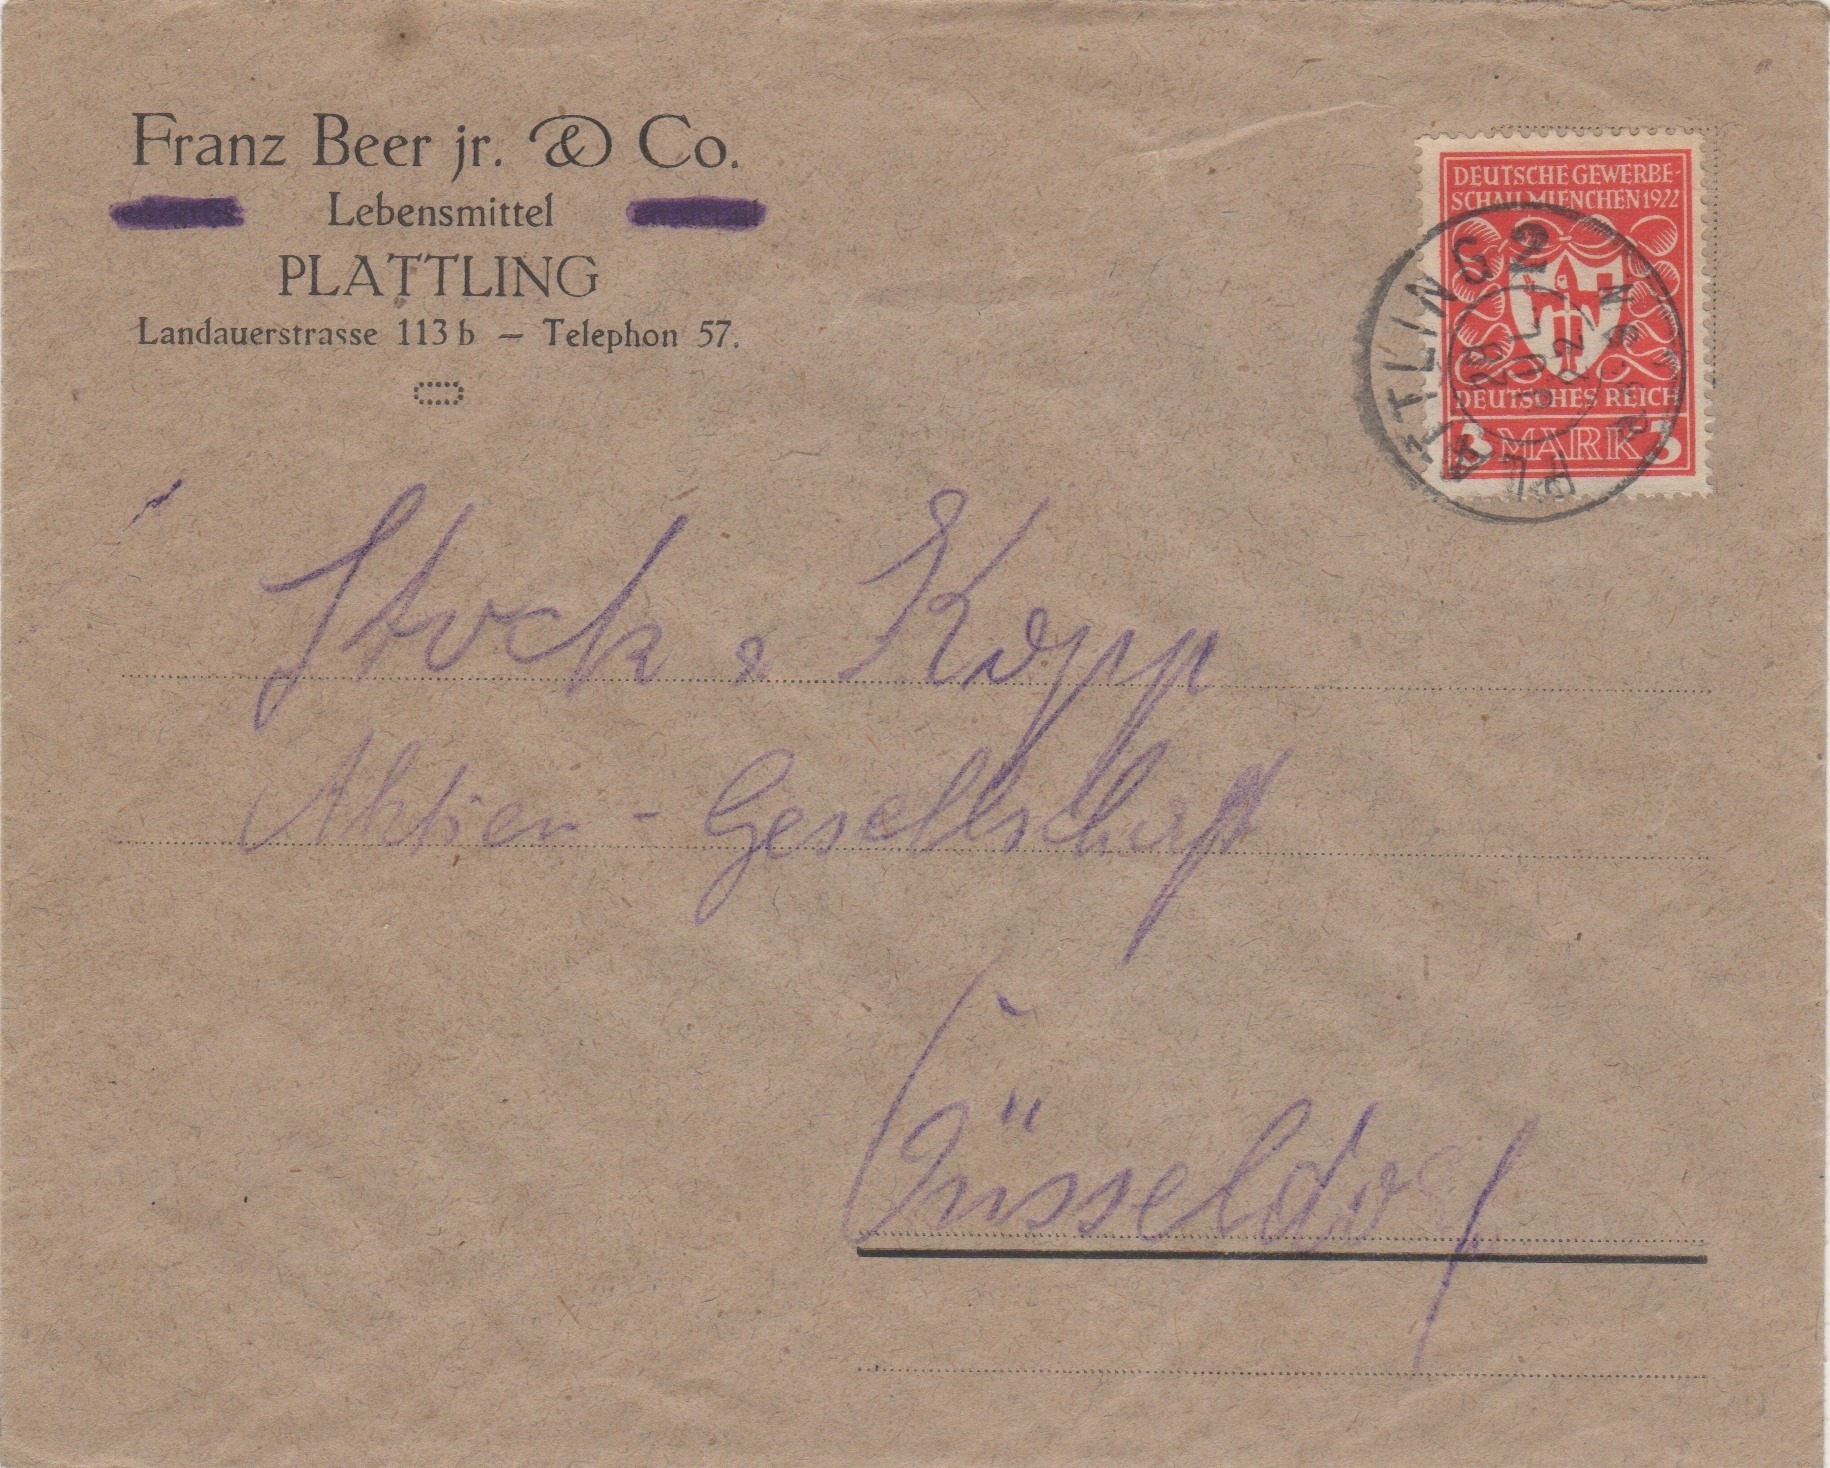 Franz Beer jr. & Co.
en gros Lebensmittel en detail
PLATTLING
Landauerstrasse 113 b — Telephon 57.
DEUTSCHE GEWERBE-
SCHAU MUENCHEN 1922
DEUTSCHES REICH
3 MARK 3
PLATTLING 2
28 JUL 22
Stock & Kopp
Aktien - Gesellschaft
Düsseldorf